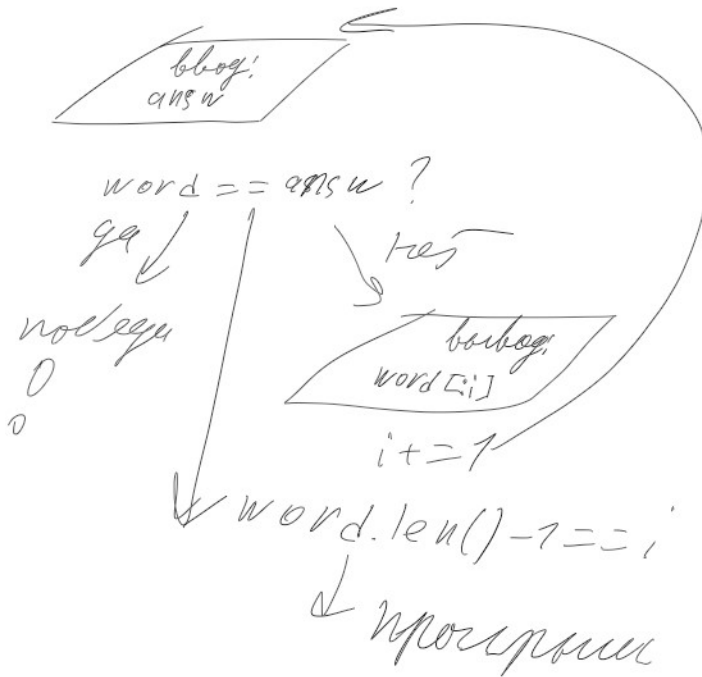 ввод:
answ
word == answ ?
да
нет
победа
вывод:
word[:i]
i+=1
word.len()-1==i
проигрыш